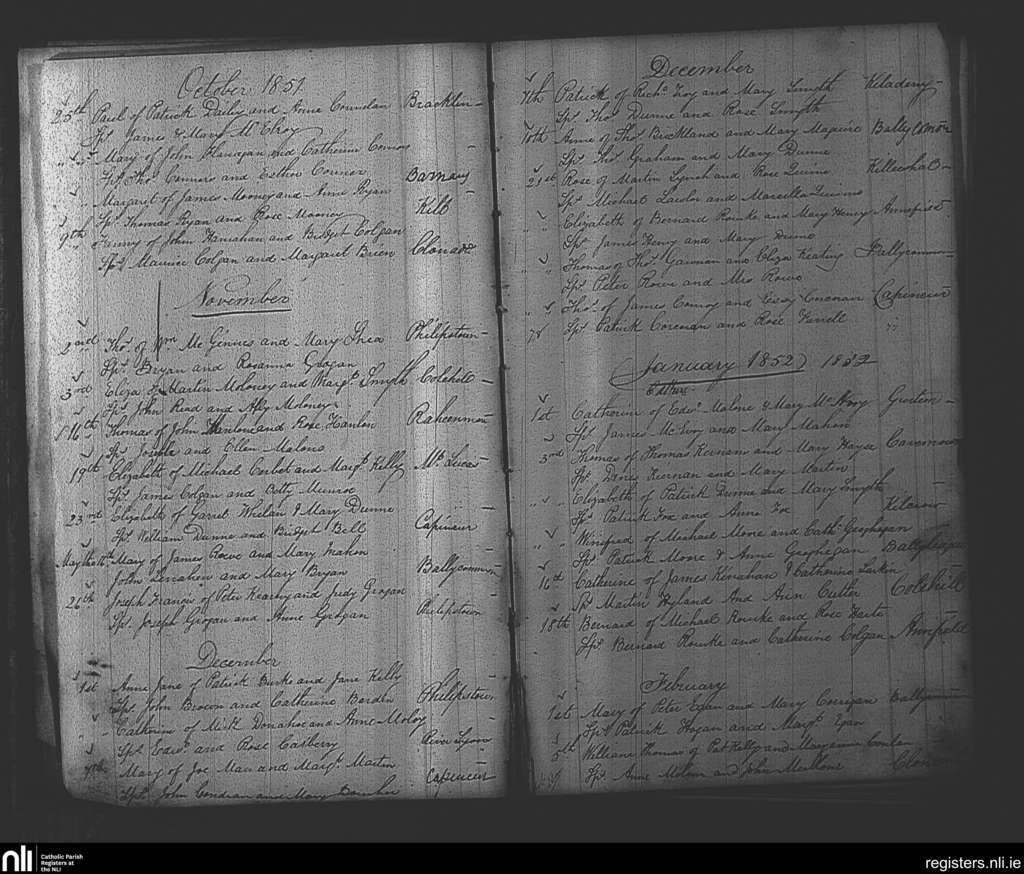 October 1851
25th Paul of Patrick Daily and Anne Connolan Bracklin
Sps James & Mary McElroy
" " Mary of John Flanagan and Catherine Connor
Sps Thos Connors and Esther Connor Barnan
" " Margaret of James Mooney and Anne Ryan
Sps Thomas Ryan and Rose Mooney Kill
9th Fanny of John Hanrahan and Bridget Colgan
Sps Maurice Colgan and Margaret Brien Clonad
November
2nd Thos. of Wm. McGinnes and Mary Shea Philipstown
Sps Bryan and Rosanna Grogan
3rd Eliza of Martin Moloney and Margt. Smyth Colehill
Sps John Read and Ally Moloney
16th Thomas of John Hanlon and Rose Hanlon Raheenmon
Sps and Ellen Malone
19th Elizabeth of Michael Corbot and Margt. Kelly Mt. Lucas
Sps James Colgan and Betty Munroe
23rd Elizabeth of Garret Whelan & Mary Dunne
Sps William Dunne and Bridget Bell Capincur
May the 10th Mary of James Rowe and Mary Mahon
John Lenahon and Mary Bryan Ballycommon
26th Joseph Francis of Peter Kearney and Judy Grogan
Sps. Joseph Grogan and Anne Grogan Philipstown
December
1st Anne Jane of Patrick Burke and Jane Kelly
Sps. John Brown and Catherine Bardin Philipstown
" Catherine of Michl Donahoe and Anne Moloy
Sps Edwd. and Rose Casberry River Lyons
7th Mary of Joe Man and Margt. Martin
Sps. John Condran and Mary Capincur
December
7th Patrick of Richd. Troy and Mary Smyth Keladery
Sps Thos Dunne and Rose Smyth
10th Anne of Thos. Buckland and Mary Maguire Ballycomon
Sps Thos. Graham and Mary Dunne
21st Rose of Martin Lynch and Rose Quinn Killeeshal
Sps Michael Lawlor and Marcella Quinns
" " Elizabeth of Bernard Rourke and Mary Henry Annfield
Sps. James Henry and Mary Dunne
" " Thomas of Thos. Gannan and Eliza Keating Ballycommon
Sps. Peter Rowe and Mrs Rowe
" " Thos. of James Conroy and Corcoran Capincur
78 Sps. Patrick Corcoran and Rose Farrell " "
January 1852 1852
Edthus
1st Catherine of Edwd. Malone & Mary McNevy
Sps James McEvoy and Mary Mahon
3rd Thomas of Thomas Keenan and Mary Hayes
Sps Denis Keenan and Mary Martin
" " Elizabeth of Patrick Dunne and Mary Smyth
Sps Patrick Fox and Anne Fox Kilcrow
" " Winifred of Michael Moore and Cathe. Geoghegan
Sps Patrick Moore & Anne Geoghegan Ballyteague
16th Catherine of James Kenahan & Catherine Larkin
Sps Martin Hyland And Ann Cutler Colehill
18th Bernard of Michael Rourke and Rose Harte
Sps. Bernard Rourke and Catherine Colgan Annfield
February
1st Mary of Peter Egan and Mary Corrigan Ballycommon
Sps Patrick Hogan and Margt. Egan
5th William Thomas of Pat Kelly and Conlan
Sps. Anne Molon and John Mullone
nli
Catholic Parish
Registers at
the NLI
registers.nli.ie